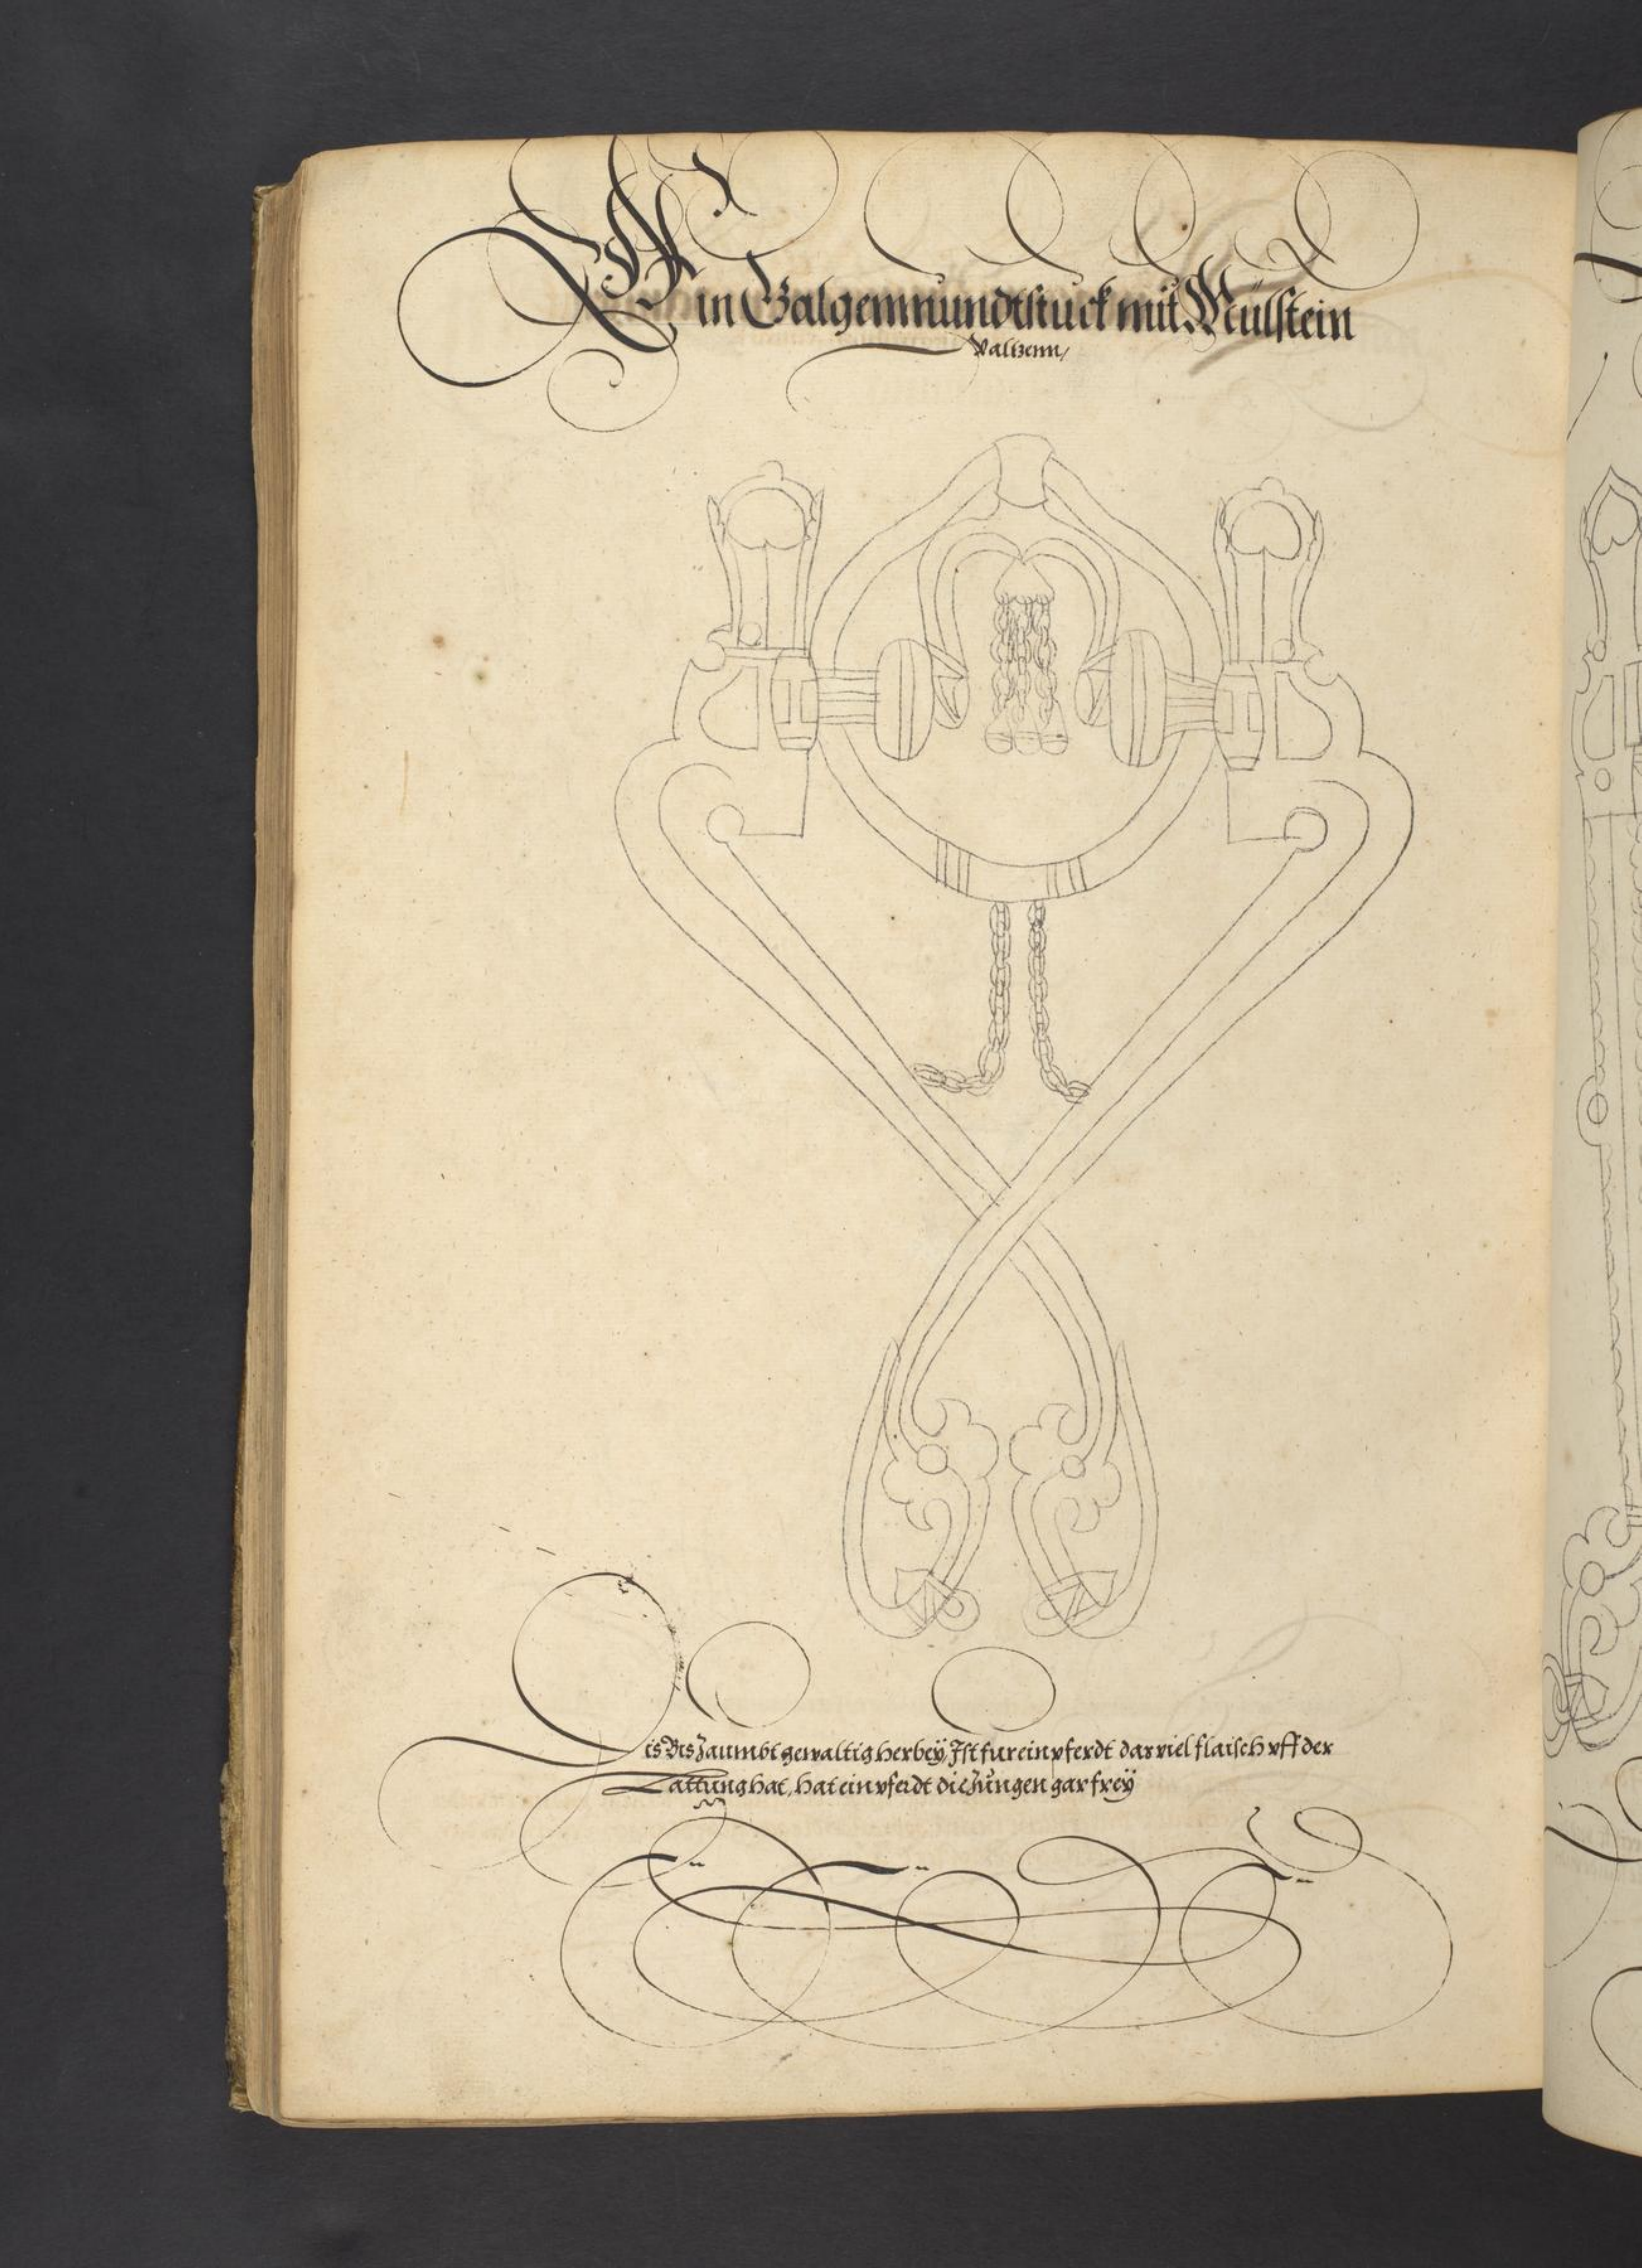 Ein Galgenmundtstuck mit Mülstein
Waltzenn/
Dis Bis Zaumbt gewaltig herbeÿ, Ist fur ein pferdt das viel flaisch vff der
Lattung hat, hat ein pferdt die Zungen gar freÿ